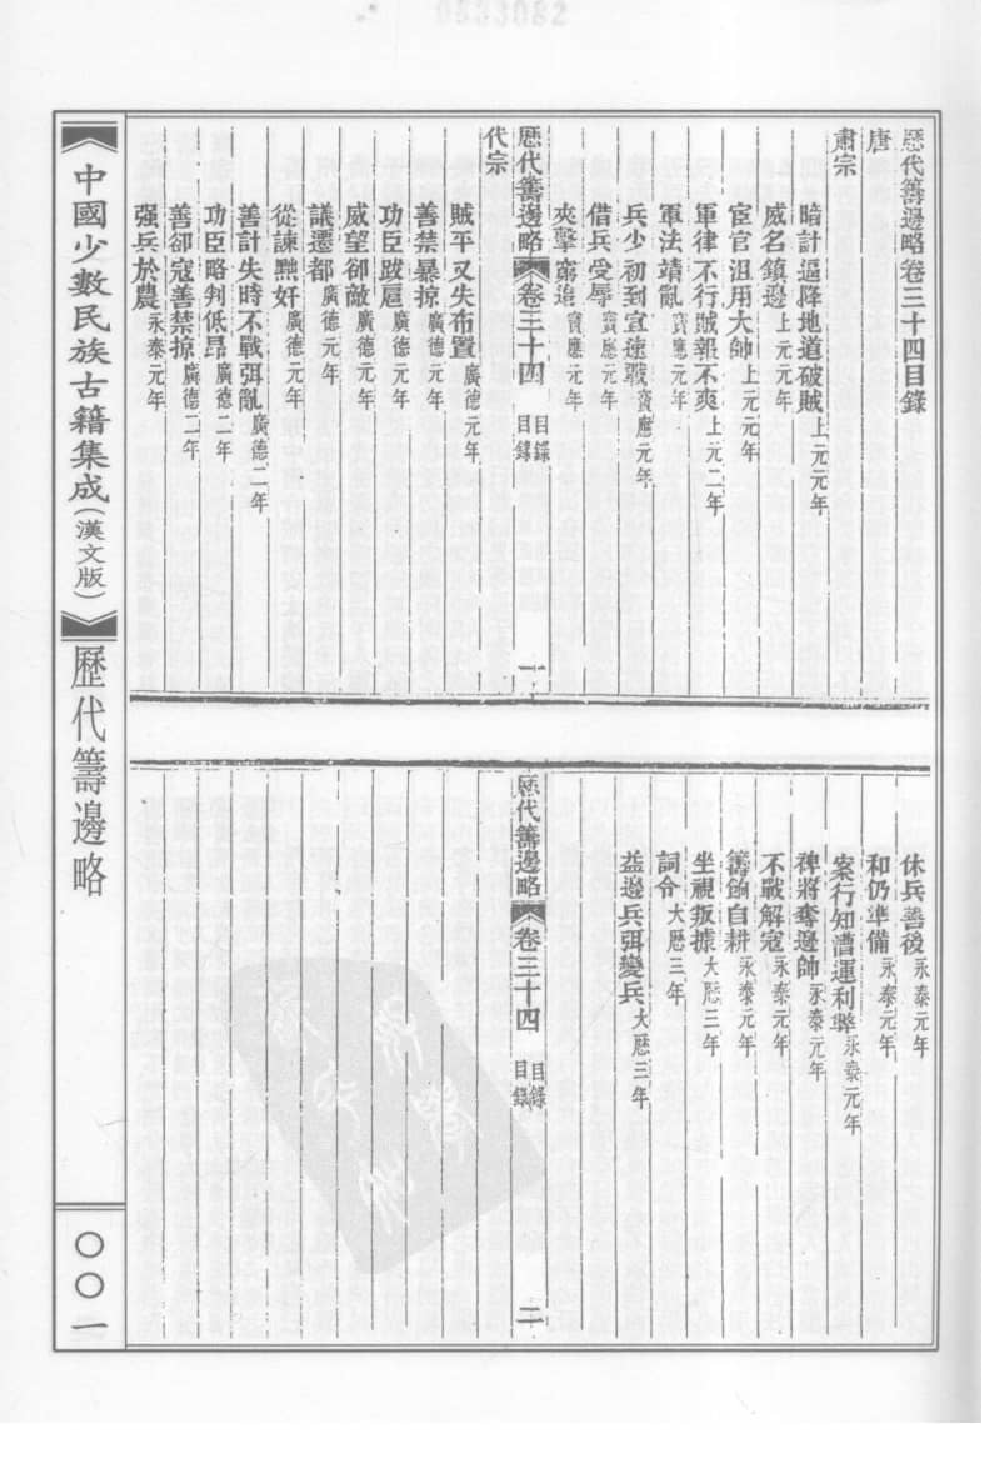 0833082
歷代籌邊略卷三十四目錄
唐
肅宗
暗計逼降地道破賊上元元年
威名鎮邊上元元年
宦官沮用大帥上元元年
軍律不行賊報不爽上元二年
軍法靖亂寶應元年
兵少初到宜速戰寶應元年
借兵受辱寶應元年
夾擊窮追寶應元年
歷代籌邊略 卷三十四 目錄 一
代宗
賊平又失布置廣德元年
善禁暴掠廣德元年
功臣跋扈廣德元年
威望卻敵廣德元年
議遷都廣德元年
從諫黜奸廣德元年
善計失時不戰弭亂廣德二年
功臣略判低昂廣德二年
善卻寇善禁掠廣德二年
强兵於農永泰元年
休兵善後永泰元年
和仍準備永泰元年
案行知漕運利弊永泰元年
裨將奪邊帥永泰元年
不戰解寇永泰元年
籌餉自耕永泰元年
坐視叛據大厯三年
詞令大厯三年
益邊兵弭變兵大厯三年
歷代籌邊略 卷三十四 目錄 二
中國少數民族古籍集成(漢文版)
歷代籌邊略
〇〇一